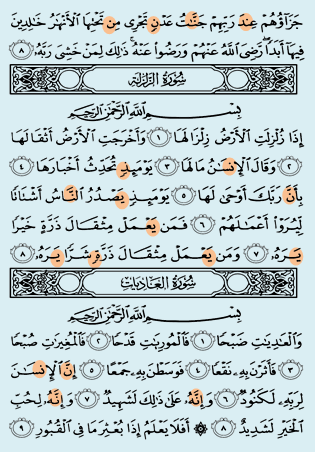 جَزَآؤُهُمْ عِندَ رَبِّهِمْ جَنَّٰتُ عَدْنٍ تَجْرِى مِن تَحْتِهَا ٱلْأَنْهَٰرُ خَٰلِدِينَ
فِيهَآ أَبَدًا ۖ رَّضِىَ ٱللَّهُ عَنْهُمْ وَرَضُوا۟ عَنْهُ ۚ ذَٰلِكَ لِمَنْ خَشِىَ رَبَّهُۥ ٨
سُورَةُ الزَّلْزَلَة
بِسْمِ ٱللَّهِ ٱلرَّحْمَٰنِ ٱلرَّحِيمِ
إِذَا زُلْزِلَتِ ٱلْأَرْضُ زِلْزَالَهَا ١ وَأَخْرَجَتِ ٱلْأَرْضُ أَثْقَالَهَا
٢ وَقَالَ ٱلْإِنسَٰنُ مَا لَهَا ٣ يَوْمَئِذٍ تُحَدِّثُ أَخْبَارَهَا ٤
بِأَنَّ رَبَّكَ أَوْحَىٰ لَهَا ٥ يَوْمَئِذٍ يَصْدُرُ ٱلنَّاسُ أَشْتَاتًا
لِّيُرَوْا۟ أَعْمَٰلَهُمْ ٦ فَمَن يَعْمَلْ مِثْقَالَ ذَرَّةٍ خَيْرًا
يَرَهُۥ ٧ وَمَن يَعْمَلْ مِثْقَالَ ذَرَّةٍ شَرًّا يَرَهُۥ ٨
سُورَةُ العَادِيَات
بِسْمِ ٱللَّهِ ٱلرَّحْمَٰنِ ٱلرَّحِيمِ
وَٱلْعَٰدِيَٰتِ ضَبْحًا ١ فَٱلْمُورِيَٰتِ قَدْحًا ٢ فَٱلْمُغِيرَٰتِ صُبْحًا
٣ فَأَثَرْنَ بِهِۦ نَقْعًا ٤ فَوَسَطْنَ بِهِۦ جَمْعًا ٥ إِنَّ ٱلْإِنسَٰنَ
لِرَبِّهِۦ لَكَنُودٌ ٦ وَإِنَّهُۥ عَلَىٰ ذَٰلِكَ لَشَهِيدٌ ٧ وَإِنَّهُۥ لِحُبِّ
ٱلْخَيْرِ لَشَدِيدٌ ٨ ۞ أَفَلَا يَعْلَمُ إِذَا بُعْثِرَ مَا فِى ٱلْقُبُورِ ٩